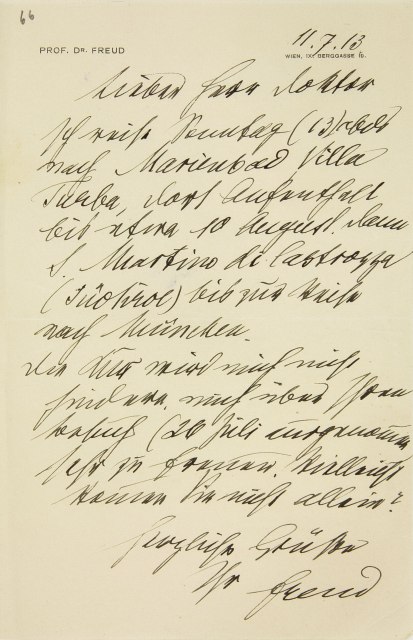 66
PROF. DR. FREUD
11.7.13
WIEN, IX., BERGGASSE 19.
Lieber Herr Doktor
Ich reise Sonntag (13) abds
nach Marienbad Villa
Turba, dort Aufenthalt
bis etwa 10 August. Dann
S. Martino di Castrozza
(Südtirol) bis zur Reise
nach München.
Die Kur wird mich nicht
hindern, mich über Ihren
Besuch (26 Juli ausgenommen
sehr zu freuen. Vielleicht
kommen Sie nicht allein?
Herzliche Grüße
Ihr Freud